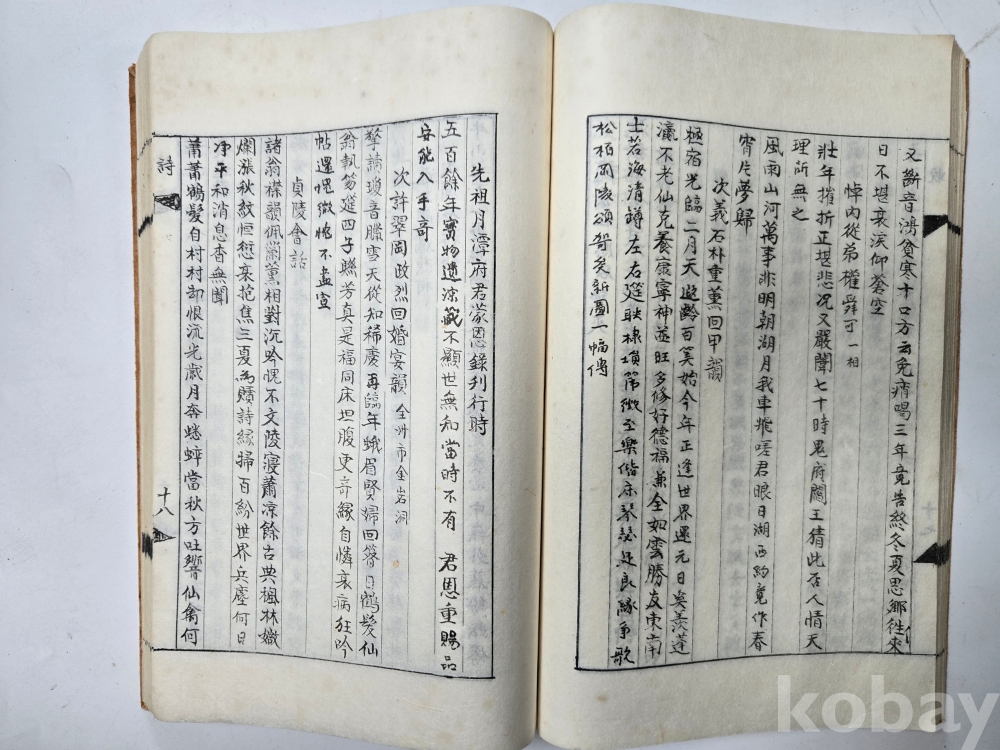 又斷音鴻貧寒十口方云免痛喝三年竟告終冬夏思鄉徃來
日不堪哀淚仰蒼空
悼內從弟權舜可一相
壯年摧折正堪悲況又嚴聞七十時鬼府閻王猜此否人情天
理所無之
風雨山河萬事非明朝湖月我車飛嗟君眼日湖西約竟作春
宵片夢歸
次義石朴重薰回甲韻
極宿光臨二月天遐齡百筭始今年正逢世界還元日奚羨蓬
瀛不老仙克養康寧神益旺多修好德福兼全如雲勝友東南
士若海清罇左右筵聯棣塤箎徵至樂偕床琴瑟是良緣爭歌
松栢岡陵頌猗矣新圖一幅傳
先祖月潭府君蒙恩錄刋行時
五百餘年寶物遺深藏不顯世無知當時不有 君恩重賜品
安能入手奇
次許翠岡政烈回婚宴韻 全州市金岩洞
擎讀瓊音臘雪天從知稀慶再臨年蛾眉賢婦回簪日鶴髮仙
翁執笏筵四子聯芳真是福同床坦腹更奇緣自憐衰病狂吟
帖還愧微忱不盡宣
貞陵會話
諸翁襟韻佩蘭薰相對沉吟愧不文陵寢蕭凉餘古典楓林嫩
爛漲秋紋恒愁衰抱焦三夏為贖詩緣掃百紛世界兵塵何日
净平和消息杳無聞
蕭蕭鶴髮自村村却恨流光歲月奔蟋蟀當秋方吐響仙禽何
詩
十八
kobay